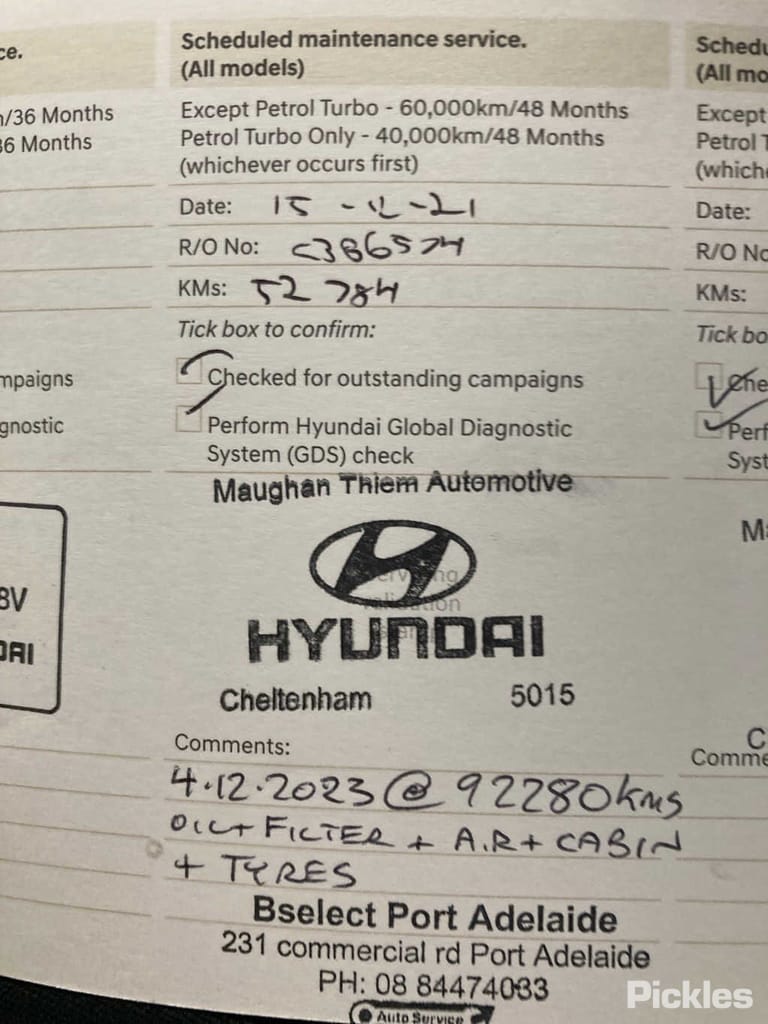 ce.
/36 Months
36 Months
mpaigns
gnostic
BV
DAI
Scheduled maintenance service.
(All models)
Except Petrol Turbo - 60,000km/48 Months
Petrol Turbo Only - 40,000km/48 Months
(whichever occurs first)
Date: 15 -12-21
R/O No: C386574
KMs: 52 784
Tick box to confirm:
Checked for outstanding campaigns
Perform Hyundai Global Diagnostic
System (GDS) check
Maughan Thiem Automotive
HYUNDAI
Cheltenham 5015
Comments:
4.12.2023 @ 92280kms
OIL+ FILTER + AIR + CABIN
+ TYRES
Bselect Port Adelaide
231 commercial rd Port Adelaide
PH: 08 84474033
Auto Service
Schedu
(All mo
Except
Petrol T
(which
Date:
R/O No
KMs:
Tick bo
Che
Perf
Syst
Ma
C
Comme
Pickles